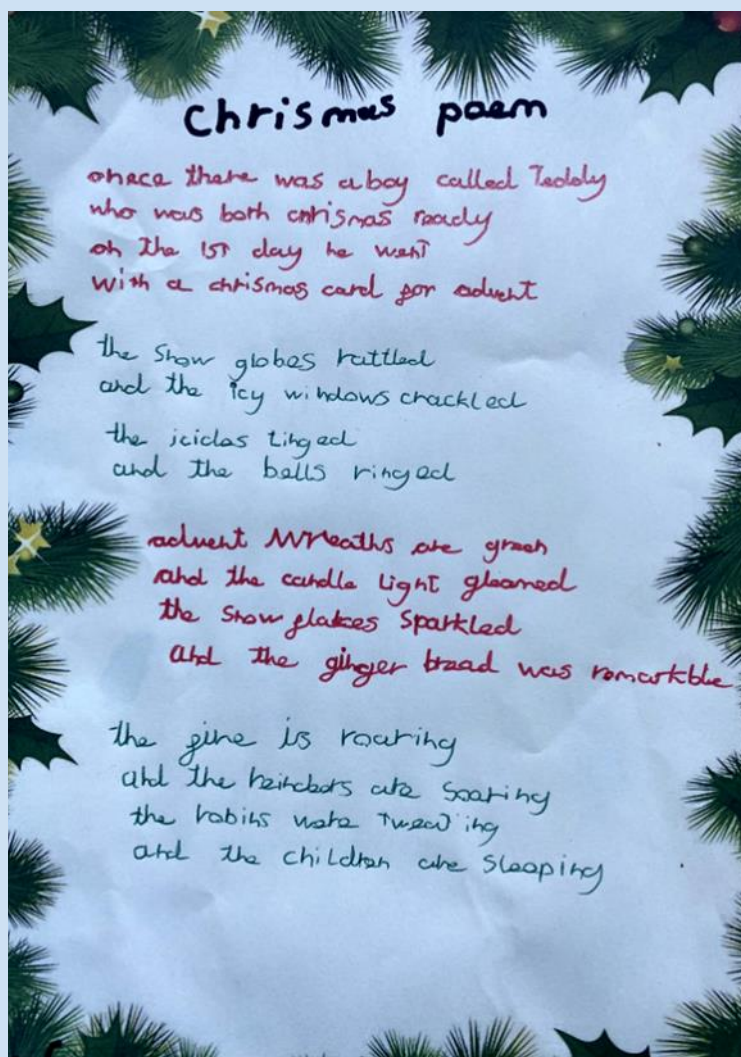 chrismas poem
onece there was a boy called Teddy
who was both chrismas ready
on the 1st day he went
with a chrismas card for advent
the snow globes rattled
and the icy windows crackled
the icicles tinged
and the bells ringed
advent wreaths are green
and the candle light gleamed
the snow flakes sparkled
and the ginger bread was remarkble
the fire is roaring
and the are soaring
the robins were
and the children are sleeping